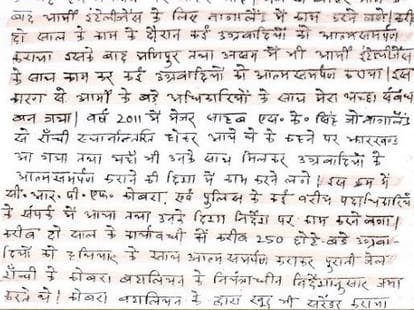 बाद आर्मी इंटेलीजेंस के लिए नागालैंड में काम करने लगे।
दो साल के काम के दौरान कई उग्रवादियों को आत्मसमर्पण
कराया इसके बाद मणिपुर तथा असम में भी आर्मी इंटेलीजेंस
के साथ काम कर कई उग्रवादियों को आत्म समर्पण कराया। इस
कारण से आर्मी के बड़े अधिकारियों के साथ मेरा अच्छा संबंध
बन गया। वर्ष 2011 में मेजर साहब एस. के. सिंह जो नागालैंड
से राँची स्थानान्तरित होकर आये थे के कहने पर झारखण्ड
आ गया तथा यहाँ भी उनके साथ मिलकर उग्रवादियों के
आत्मसमर्पण कराने की दिशा में काम करने लगे। इस क्रम में
सी. आर. पी. एफ. कोबरा, एवं पुलिस के कई वरीय पदाधिकारियों
के संपर्क में आया तथा उनके दिशा निर्देश पर काम करने लगा।
करीब दो साल के कार्यावधी में करीब 250 छोटे-बड़े उग्रवा-
दियों को हथियार के साथ आत्म समर्पण कराकर पुरानी जेल
राँची के कोबरा बटालियन के नियंत्राधीन निर्देशानुसार जमा
करते थे। कोबरा बटालियन के द्वारा खुद भी सरेंडर कराया